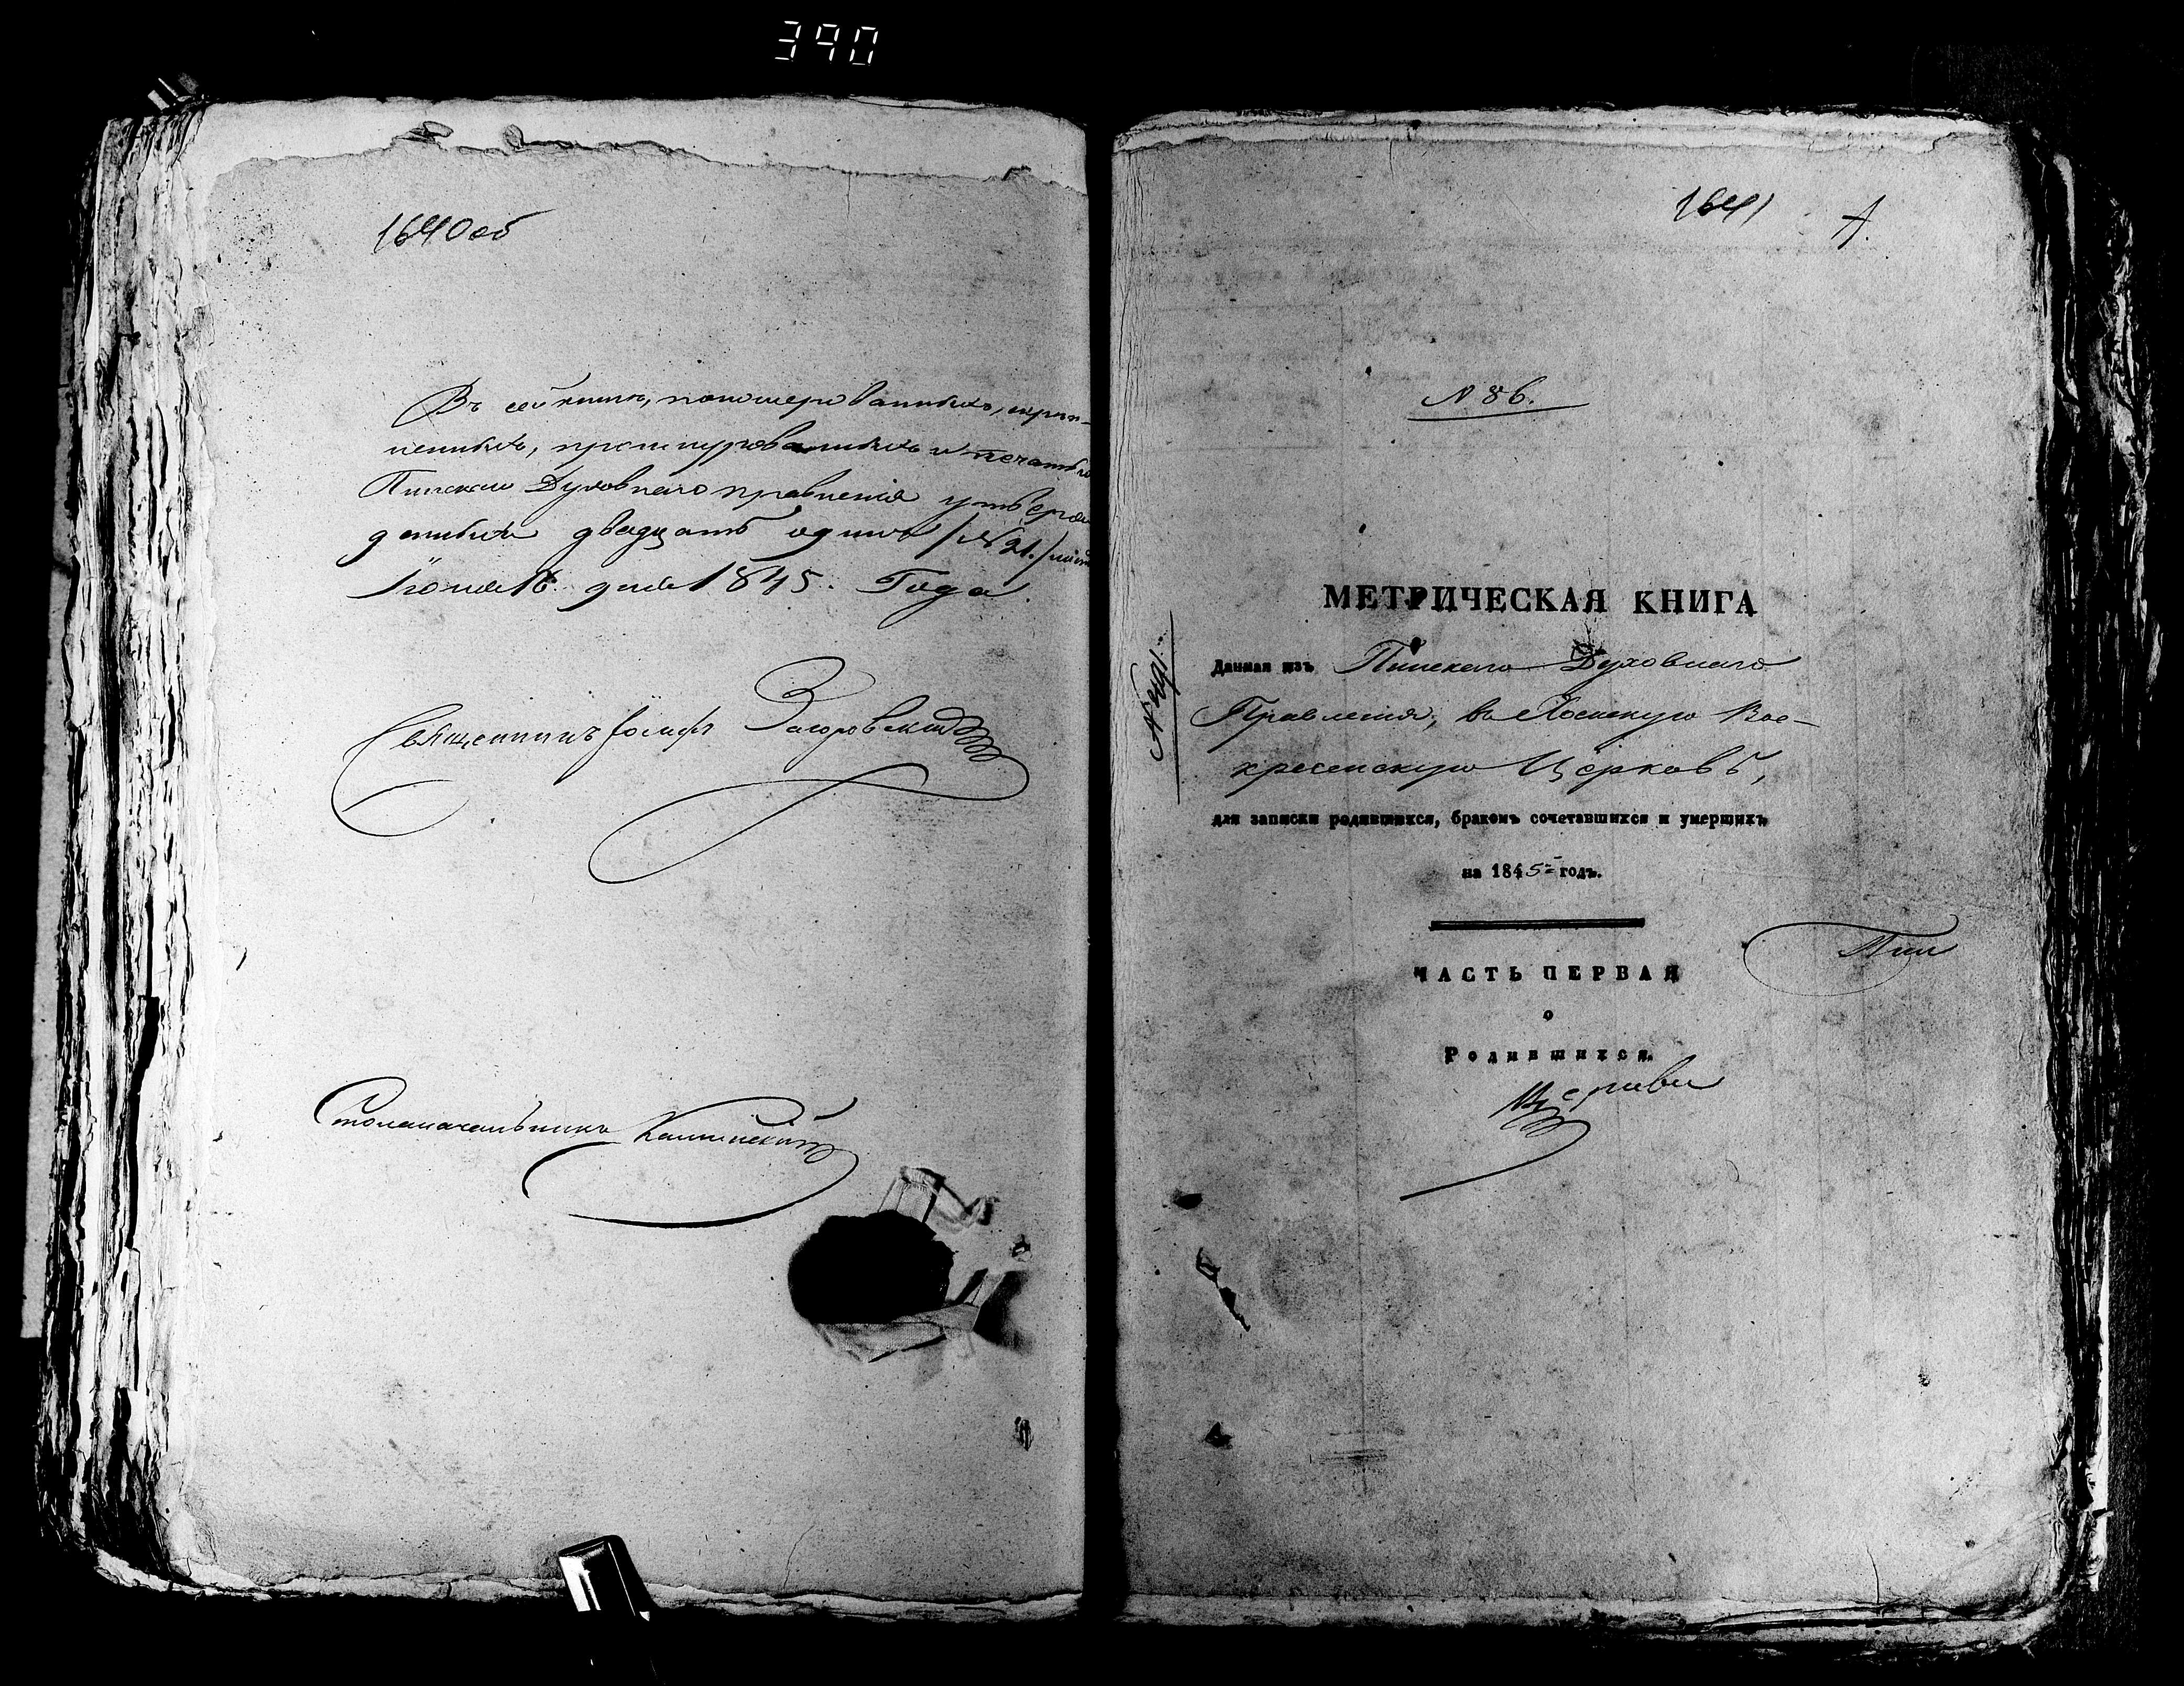 390
1640об
Въ сей книгѣ, нономерованныхъ, скрѣп-
ленныхъ, прошнурованныхъ и печатью
Пинскаго Духовнаго правленія утверж
денныхъ двадцать одинъ /N 21./ лист
Іюня 16 дня 1845. Года.
Священникъ Іосифъ Загоровскій
Столоначальникъ Калинскій
1641
N 86.
МЕТРИЧЕСКАЯ КНИГА
Данная изъ Пинскаго Духовнаго
Правленія, въ Хоенскую Вос-
кресенскую Церковь,
для записки родившихся, бракомъ сочетавшихся и умершихъ,
на 1845 годъ.
ЧАСТЬ ПЕРВАЯ
о
Родившихся.
Пин